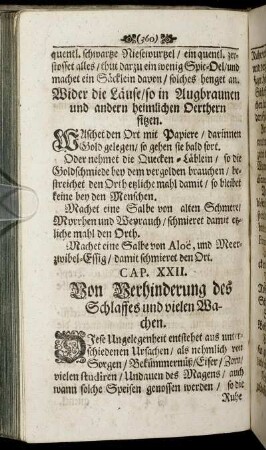 (360)
quentl. schwartze Niesewurtzel / ein quentl. zer-
stosset alles / thut darzu ein wenig Spic-Oel / und
machet ein Säcklein davon / solches henget an.
Wider die Läuse / so in Augbraunen
und andern heimlichen Oerthern
sitzen.
WIschet den Ort mit Papiere / darinnen
Gold gelegen / so gehen sie bald fort.
Oder nehmet die Quecken-Läblein / so die
Goldschmiede bey dem vergolden brauchen / be-
streichet den Orth etzliche mahl damit / so bleibet
keine bey den Menschen.
Machet eine Salbe von alten Schmeer /
Myrrhen und Weyrauch / schmieret damit etz-
liche mahl den Orth.
Machet eine Salbe von Aloë, und Meer-
zwibel-Essig / damit schmieret den Ort.
CAP. XXII.
Von Verhinderung des
Schlaffes und vielen Wa-
chen.
DIese Ungelegenheit entstehet aus unter-
schiedenen Ursachen / als nehmlich von
Sorgen / Bekümmernüß / Eifer / Zorn /
vielen studiren / Undauen des Magens / auch
wann solche Speisen genossen werden / so die
Ruhe